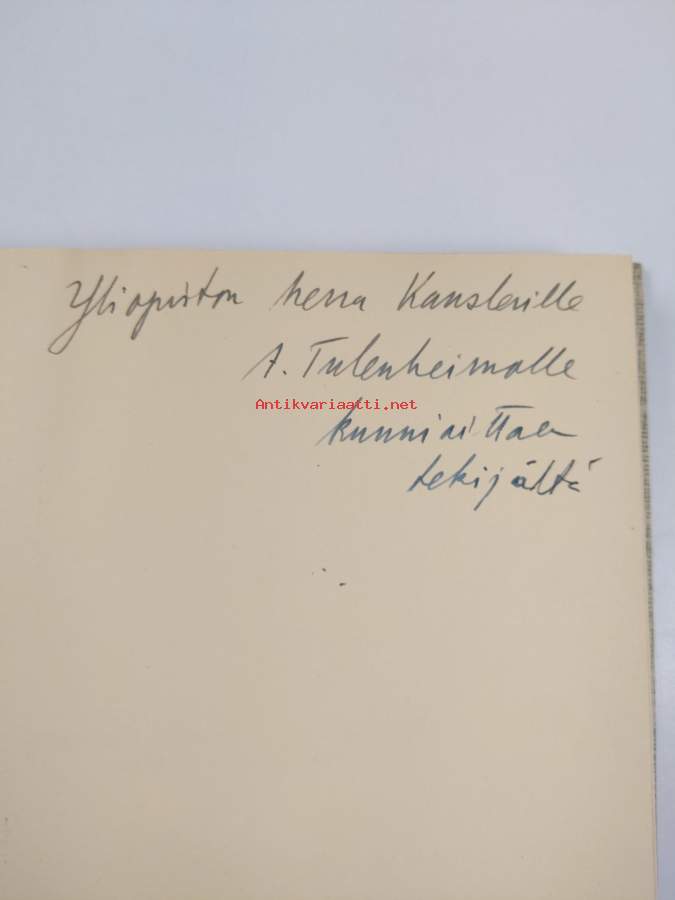 Yliopiston herra Kanslerille
A. Tulenheimolle
Antikvariaatti.net
kunnioittaen
tekijältä